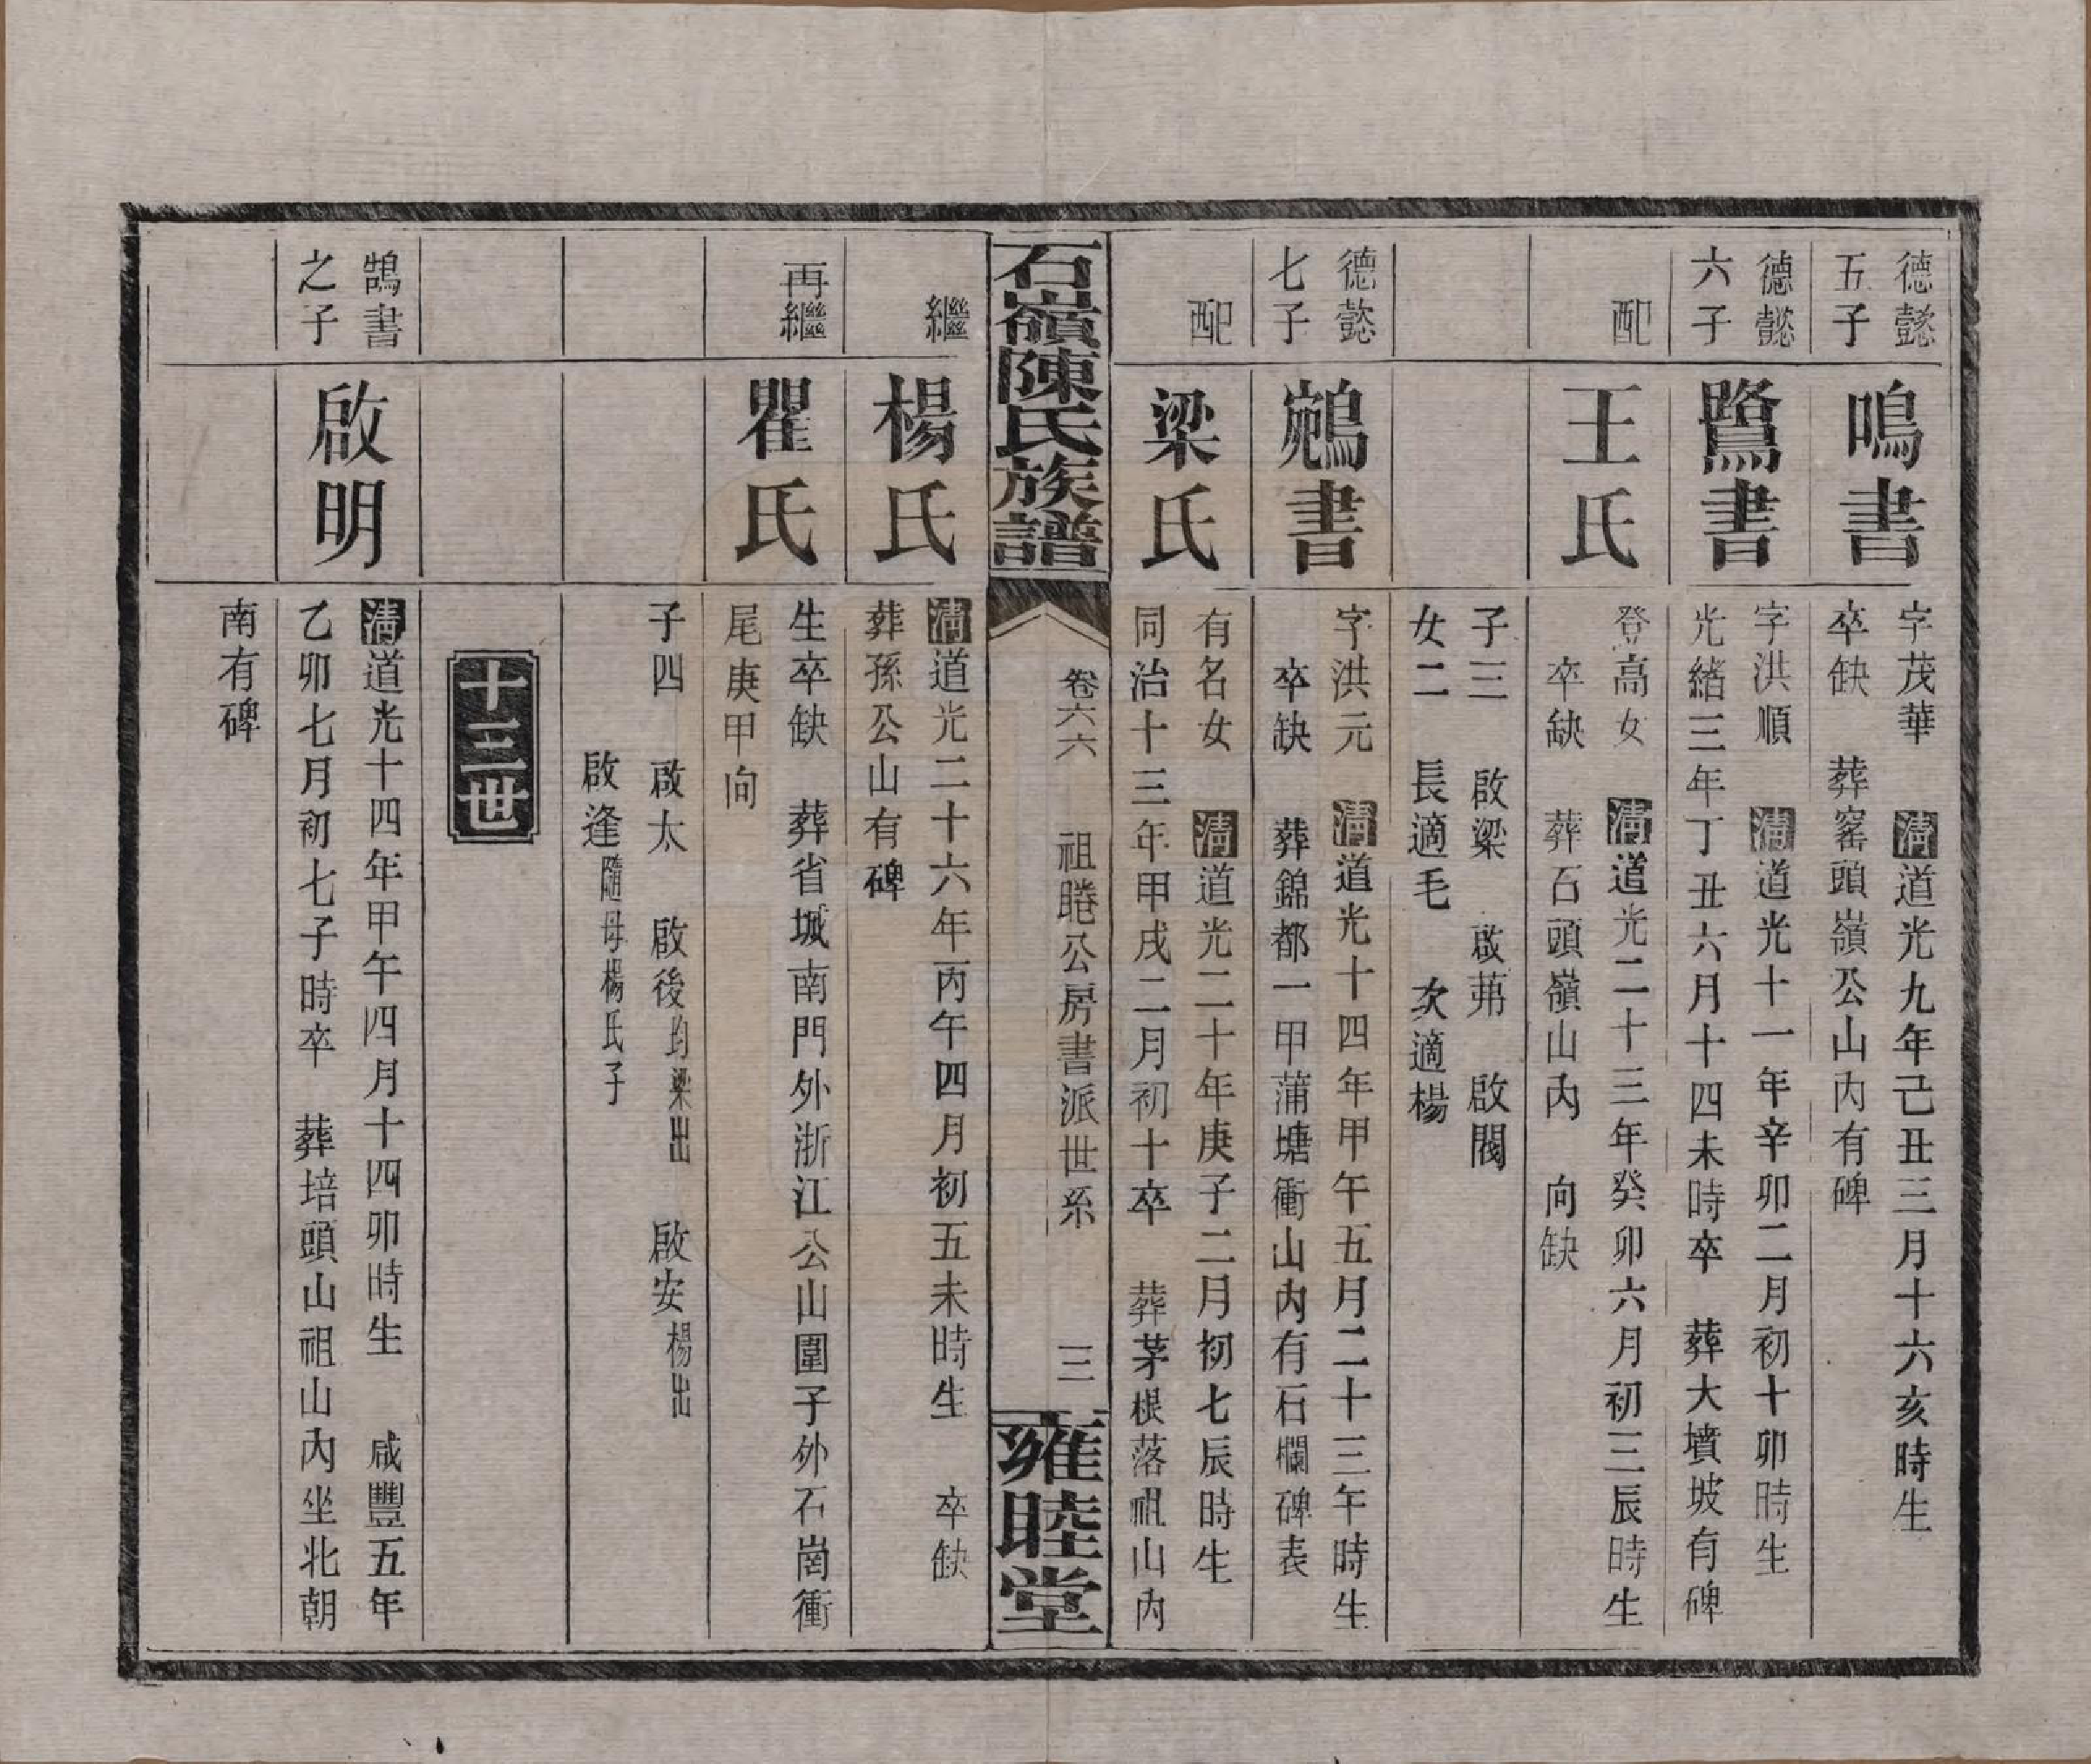 德懿
五子
鳴書
字茂華　清道光九年己丑三月十六亥時生
卒缺　葬窰頭嶺公山內有碑
德懿
六子
鷺書
字洪順　清道光十一年辛卯二月初十卯時生
光緒三年丁丑六月十四未時卒　葬大墳坡有碑
配
王氏
登高女　清道光二十三年癸卯六月初三辰時生
卒缺　葬石頭嶺山內　向缺
子三　啟梁　啟茀　啟閥
女二　長適毛　次適楊
德懿
七子
鵷書
字洪元　清道光十四年甲午五月二十三午時生
卒缺　葬錦都一甲蒲塘衝山內有石欄碑表
配
梁氏
有名女　清道光二十年庚子二月初七辰時生
同治十三年甲戌二月初十卒　葬茅根落祖山內
石嶺陳氏族譜
卷六六　祖睠公房書派世系　三
雍睦堂
繼
楊氏
清道光二十六年丙午四月初五未時生　卒缺
葬孫公山有碑
再繼
瞿氏
生卒缺　葬省城南門外浙江公山圍子外石崗衝
尾庚甲向
子四　啟太　啟後均梁出　啟安楊出
啟逢隨母楊氏子
十三世
鵠書
之子
啟明
清道光十四年甲午四月十四卯時生　咸豐五年
乙卯七月初七子時卒　葬培頭山祖山內坐北朝
南有碑